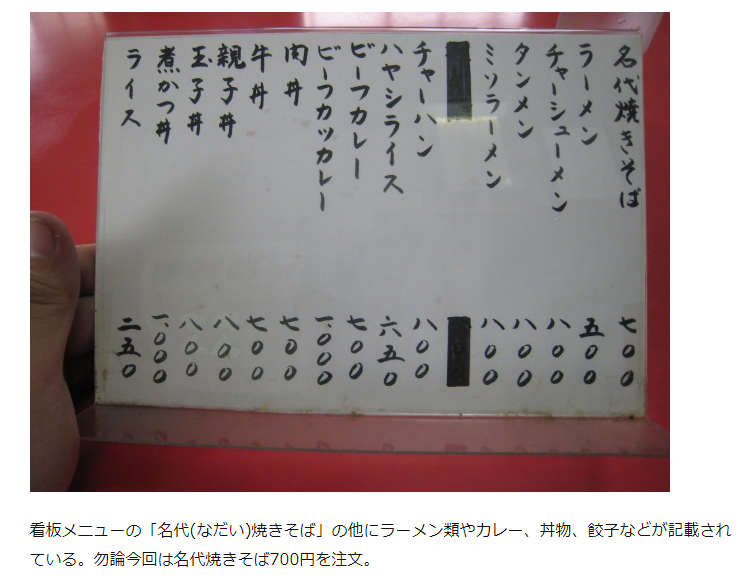 名代焼きそば 七００
ラーメン 五００
チャーシューメン 八００
タンメン 八００
ミソラーメン 八００
チャーハン 八００
ハヤシライス 六五０
ビーフカレー 七００
ビーフカツカレー 一、０００
肉丼 七００
牛丼 七００
親子丼 八００
玉子丼 八００
煮かつ丼 一、０００
ライス 二五０
看板メニューの「名代(なだい)焼きそば」の他にラーメン類やカレー、丼物、餃子などが記載され
ている。勿論今回は名代焼きそば700円を注文。